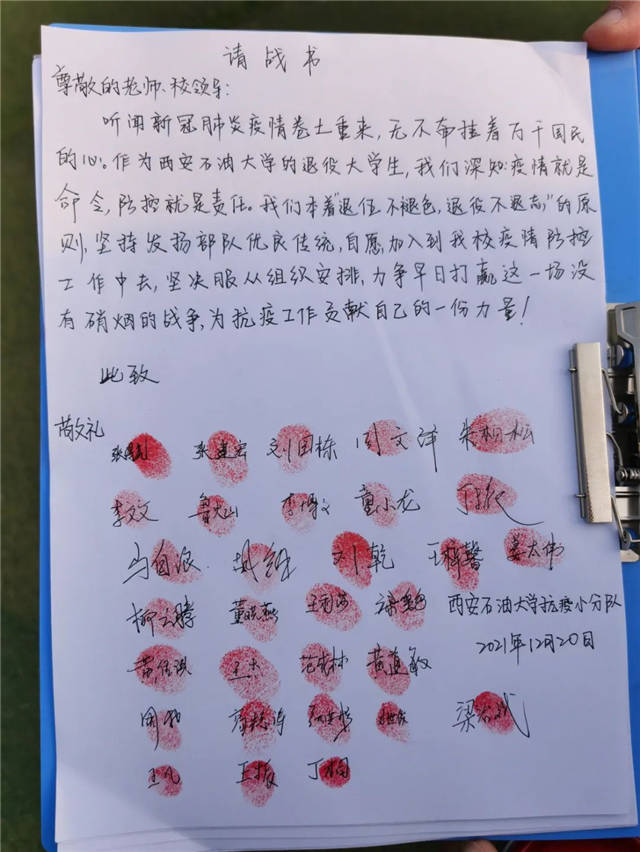 请战书
尊敬的老师、校领导:
听闻新冠肺炎疫情卷土重来,无不牵挂着万千国民
的心。作为西安石油大学的退役大学生,我们深知:疫情就是
命令,防控就是责任。我们本着“退伍不褪色,退役不退志”的原
则,坚持发扬部队优良传统,自愿加入到我校疫情防控
工作中去,坚决服从组织安排,力争早日打赢这一场没
有硝烟的战争,为抗疫工作贡献自己的一份力量!
此致
敬礼
刘国栋 周文洋 朱桐松
李文文 鲁火山 童小龙
马自派 刘乾 王梓馨 姜太伟
柳云腾 董晓燕 西安石油大学抗疫小分队
2021年12月20日
黄佳琪 王杰 范书林 黄道敏
周勃
王凡 王振 丁桐